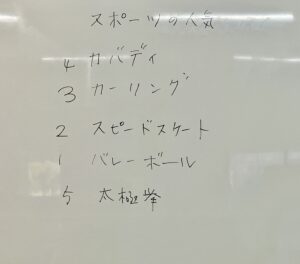 スポーツの人気
4 カバディ
3 カーリング
2 スピードスケート
1 バレーボール
5 太極拳